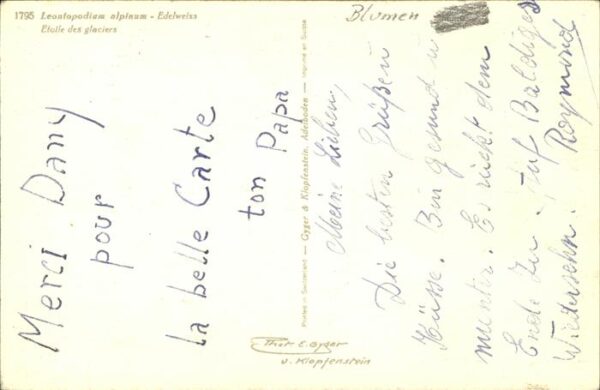 1795 Leontopodium alpinum - Edelweiss
Etoile des glaciers
Blumen
Merci Dany
pour
la belle Carte
ton Papa
Printed in Switzerland — Gyger & Klopfenstein, Adelboden — Imprimé en Suisse
Meine Lieben,
Die besten Grüßen u
Küsse. Bin gesund u
munter. Es rückt dem
Ende zu! Auf Baldiges
Wiedersehn! Raymond
Phot E. Gyger
u. Klopfenstein